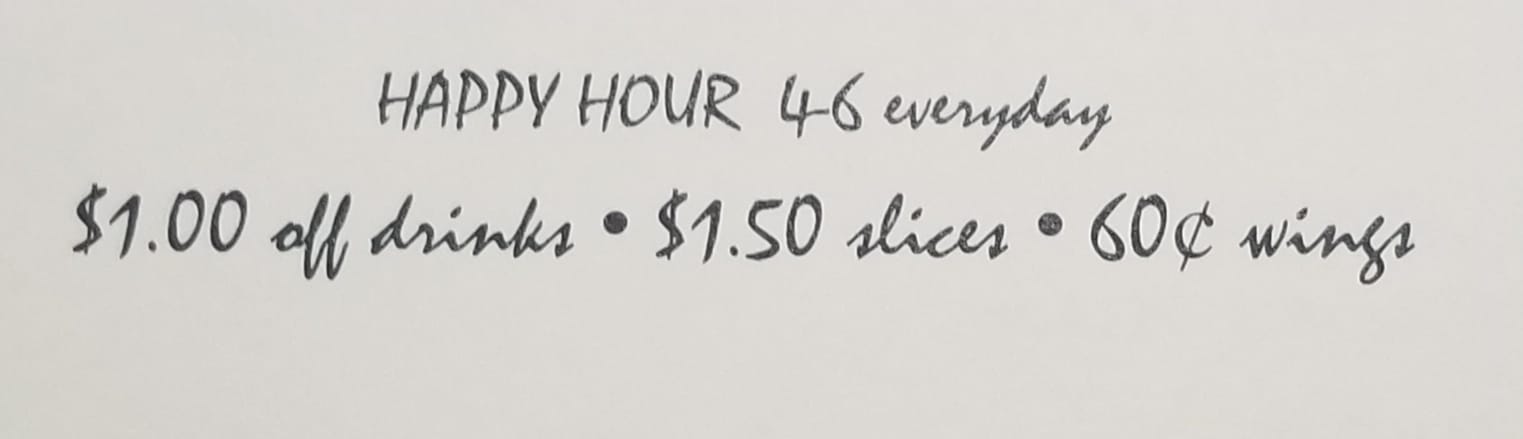 HAPPY HOUR 4-6 everyday
$1.00 off drinks • $1.50 slices • 60¢ wings